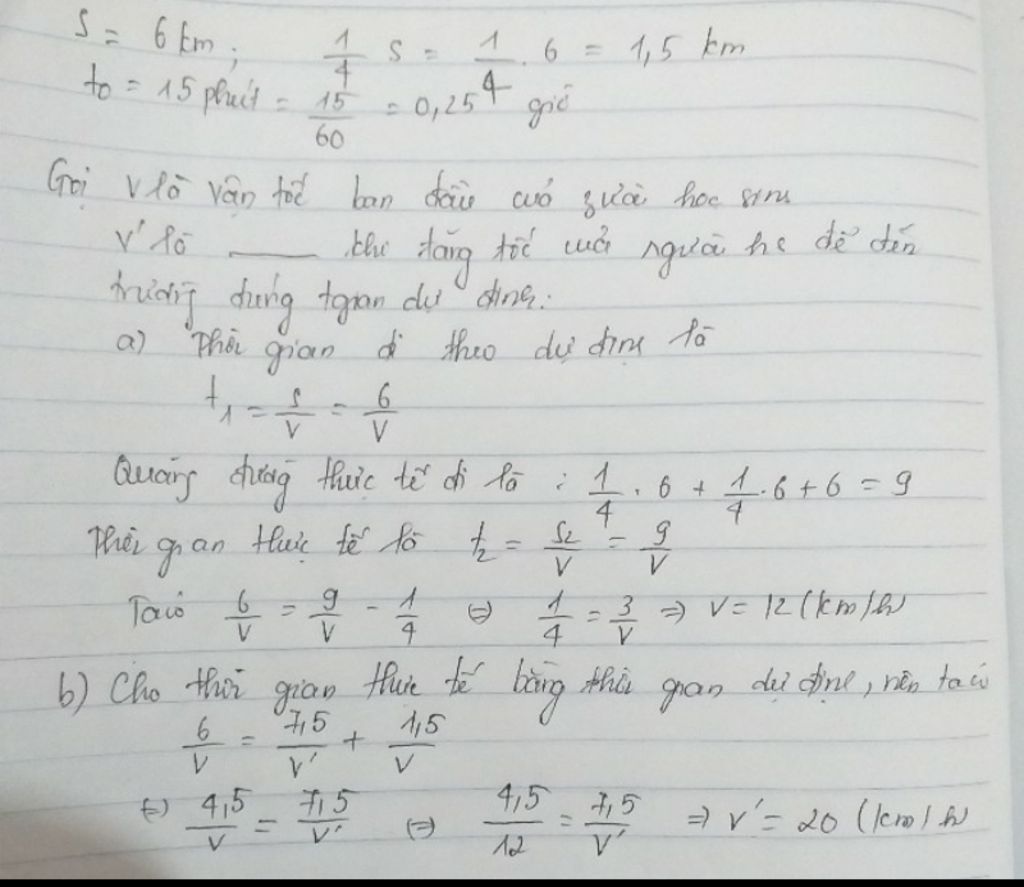 S = 6 km; 1/4 S = 1/4 . 6 = 1,5 km
t₀ = 15 phút = 15/60 = 0,25 giờ
Gọi v là vận tốc ban đầu của học sinh
v' là ____ khi tăng tốc của người hs để đến
trường đúng tgian dự định:
a) Thời gian đi theo dự định là
t₁ = S/V = 6/V
Quãng đường thực tế đi là : 1/4 . 6 + 1/4 . 6 + 6 = 9
Thời gian thực tế là t₂ = S₂/V = 9/V
Ta có 6/V = 9/V - 1/4 ⇔ 1/4 = 3/V ⇒ V = 12 (km/h)
b) Cho thời gian thực tế bằng thời gian dự định, nên ta có
6/V = 7,5/V' + 1,5/V
⇔ 4,5/V = 7,5/V' ⇔ 4,5/12 = 7,5/V' ⇒ V' = 20 (km/h)